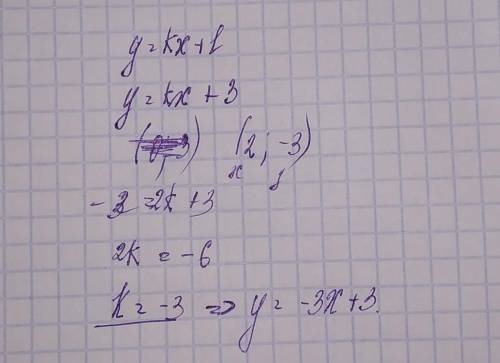 y = kx + l
y = kx + 3
(0; 3) (2; -3)
x y
-3 = 2k + 3
2k = -6
k = -3 => y = -3x + 3.